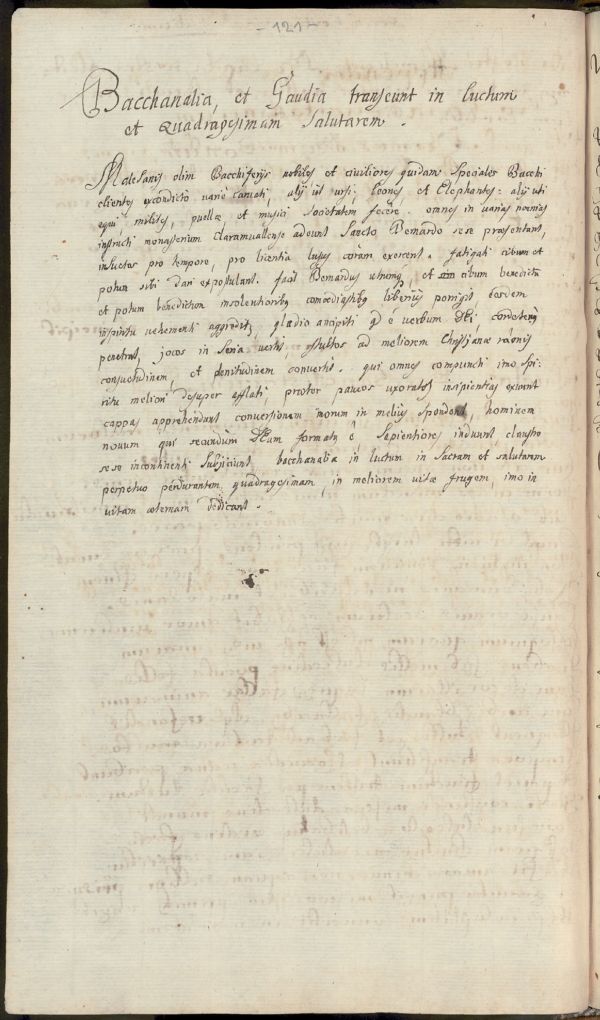 -121-
Bacchanalia, et Gaudia transeunt in luctum
et Quadragesimam salutarem.
Malesanis olim Bacchiferijs nobiles et civiliores quidam speciales Bacchi
clientes excondicto varie larvati, alij uti ursi, leones, et Elephantes: alij uti
equi, milites, puellæ et musici societatem fecere. omnes in varias nænias
instructi monasterium Claramvallense adeunt Sancto Bernardo se se præsentant,
insuetos pro tempore, pro licentia lusus coram exercent. fatigati cibum et
potum sibi dari expostulant. facit Bernardus utrumq, et cibum benedictū
et potum benedictum insolentioribq comœdiastibq liberius porrigit Eosdem
inspiritu vehementi aggredit, gladio ancipiti qd ē verbum DEi, corda eorq
penetrat, jocos in seria vertit, stultos ad meliorem Christjanæ raōnis
consuetudinem, et pœnitudinem convertit. qui omnes compuncti imo spi:
ritu meliori desuper afflati, præter paucos uxoratos insipientias exuunt
cappas apprehendunt conversionem morum in melius spondent, hominem
novum qui secundum DEum formatq ē, sapientiores induunt, claustro
se se incontinenti subijciunt. bacchanalia in luctum in sacram et salutarem
perpetuo perdurantem quadragesimam, in meliorem vitæ frugem, imo in
vitam æternam dedicant.